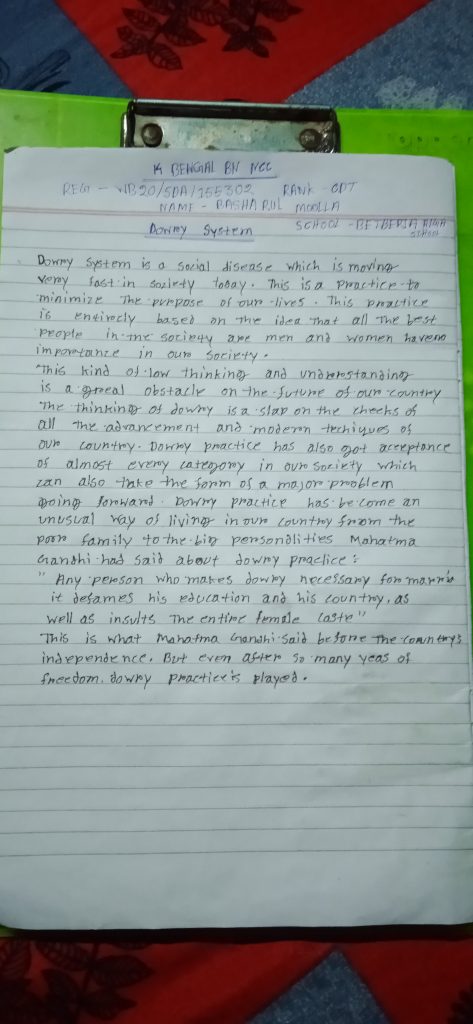 K BENGAL BN NCC
REG - WB20/SDA/155302 RANK - CDT
NAME - BASHARUL MOOLLA
SCHOOL - BETBERIA HIGH SCHOOL
Dowry System
Dowry System is a social disease which is moving
very fast in society today. This is a practice to
minimize The purpose of our lives. This practice
is entirely based on the idea that all The best
people in the society are men and women have no
importance in our society.
This kind of low thinking and understanding
is a great obstacle on the future of our country
The thinking of dowry is a slap on the cheeks of
all the advancement and modern techiques of
our country. Dowry practice has also got acceptance
of almost every category in our society which
can also take the form of a major problem
going forward. Dowry practice has become an
unusual way of living in our country from the
poor family to the big personalities Mahatma
Gandhi had said about dowry practice :
" Any person who makes dowry necessary for
it defames his education and his country, as
well as insults The entire female caste "
This is what Mahatma Gandhi said before the country's
independence. But even after so many yeas of
freedom. dowry practice is played.